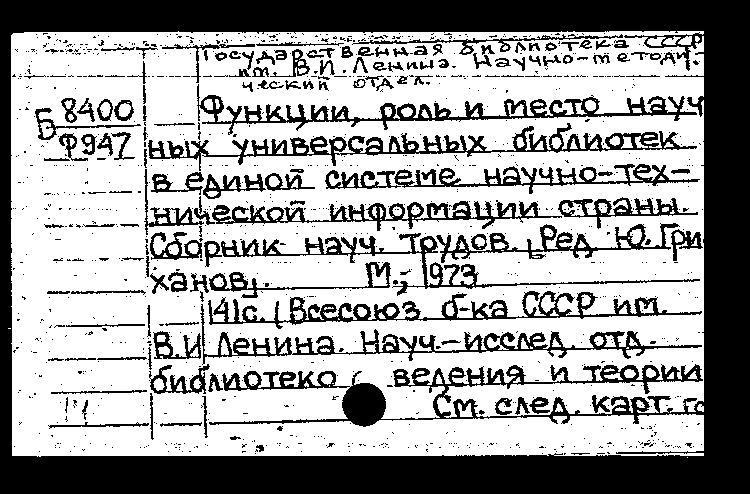 Государственная библиотека СССР
им. В.И. Ленина. Научно-методи-
ческий отдел.
Б 8400
Ф947
Функции, роль и место науч
ных универсальных библиотек
в единой системе научно-тех-
нической информации страны.
Сборник науч. трудов. [Ред Ю. Гри
ханов]. М., 1973
141с. (Всесоюз. б-ка СССР им.
В.И Ленина. Науч.-исслед. отд.
библиотеко ведения и теории
См. след. карт.